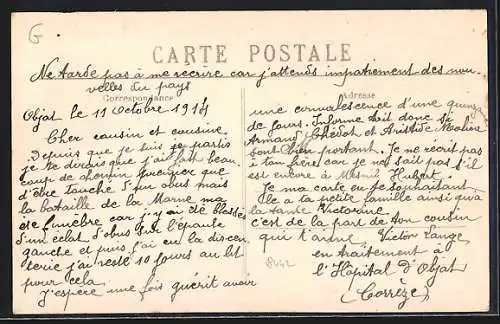 G
CARTE POSTALE
Ne tarde pas à me récrire car j'attends impatiement des nou-
velles du pays
Correspondance
Adresse
Objat le 11 Octobre 1914
Cher cousin et cousine
Depuis que je suis parti
je te dirais que j'ai fait beau
coup de chemin
d'être touché d'un obus mais
la bataille de la Marne m'a
été funèbre car j'y ai été blessé
d'un éclat d'obus sur l'épaule
gauche et puis j'ai eu la dissen
terie j'ai resté 10 jours au lit
pour cela
J'espère une fois guérit avoir
une convalescence d'une quinzaine
de jours. Informe toit donc si
Armand Chédot et Aristide
sont bien portant. Je ne récrit pas
à ton frère car je ne sait pas s'il
est encore à Mesnil Hubert.
Je ma carte en te souhaitant
le a ta petite famille ainsi qu'a
ta tante Victorine
c'est de la part de ton cousin
qui t'aime Victor Lange
en traitement à
l'Hôpital d'Objat
(Corrèze)
8442